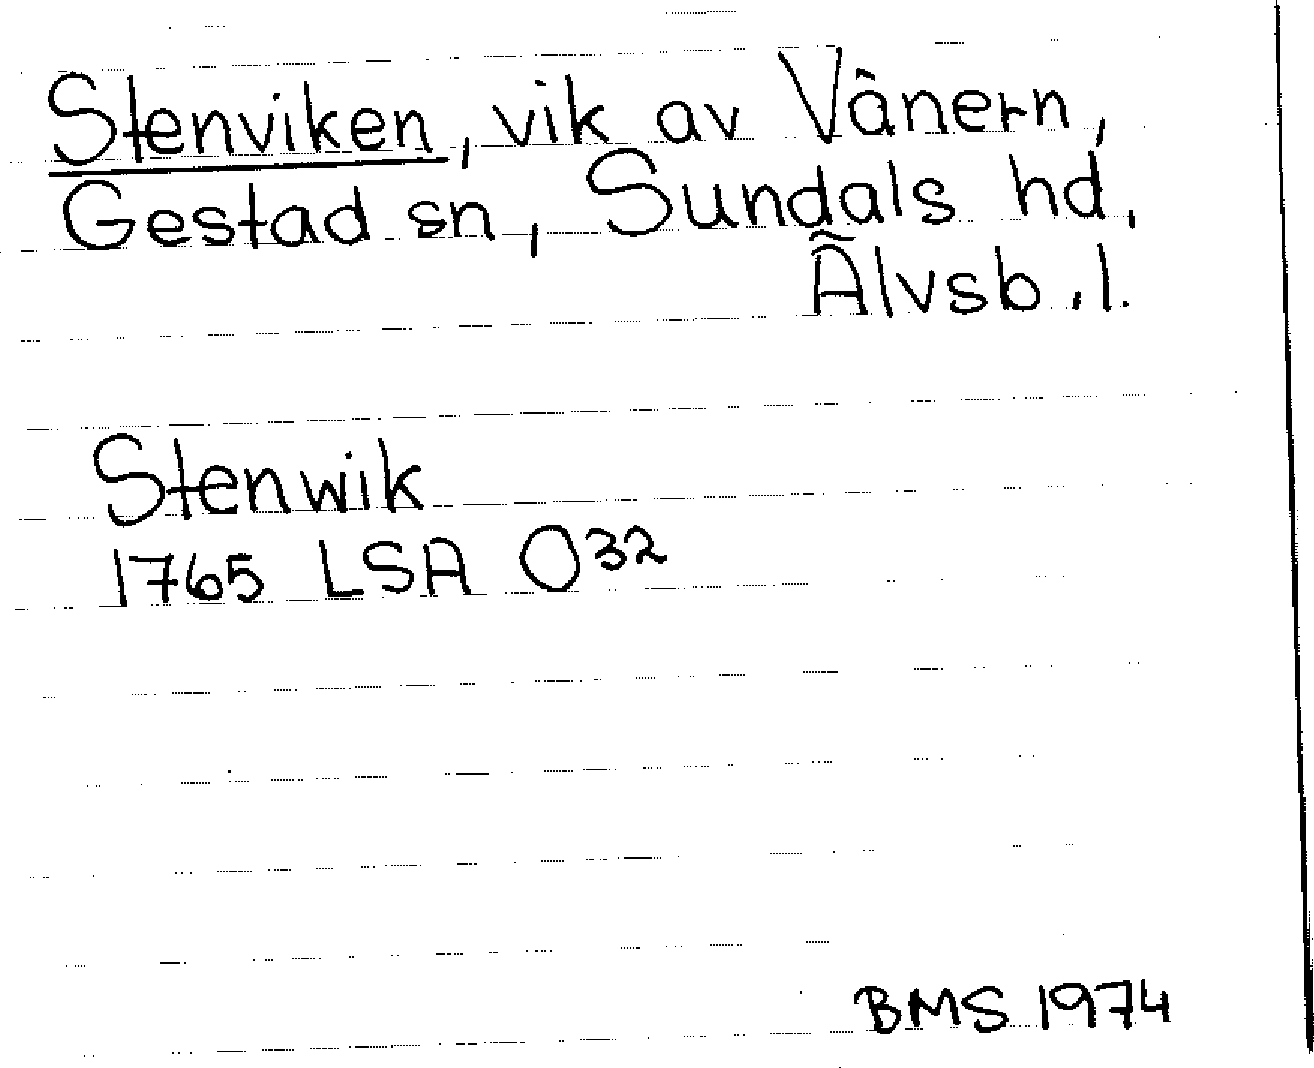 Stenviken, vik av Vänern,
Gestad sn, Sundals hd,
Älvsb. l.
Stenwik
1765 LSA O32
BMS 1974